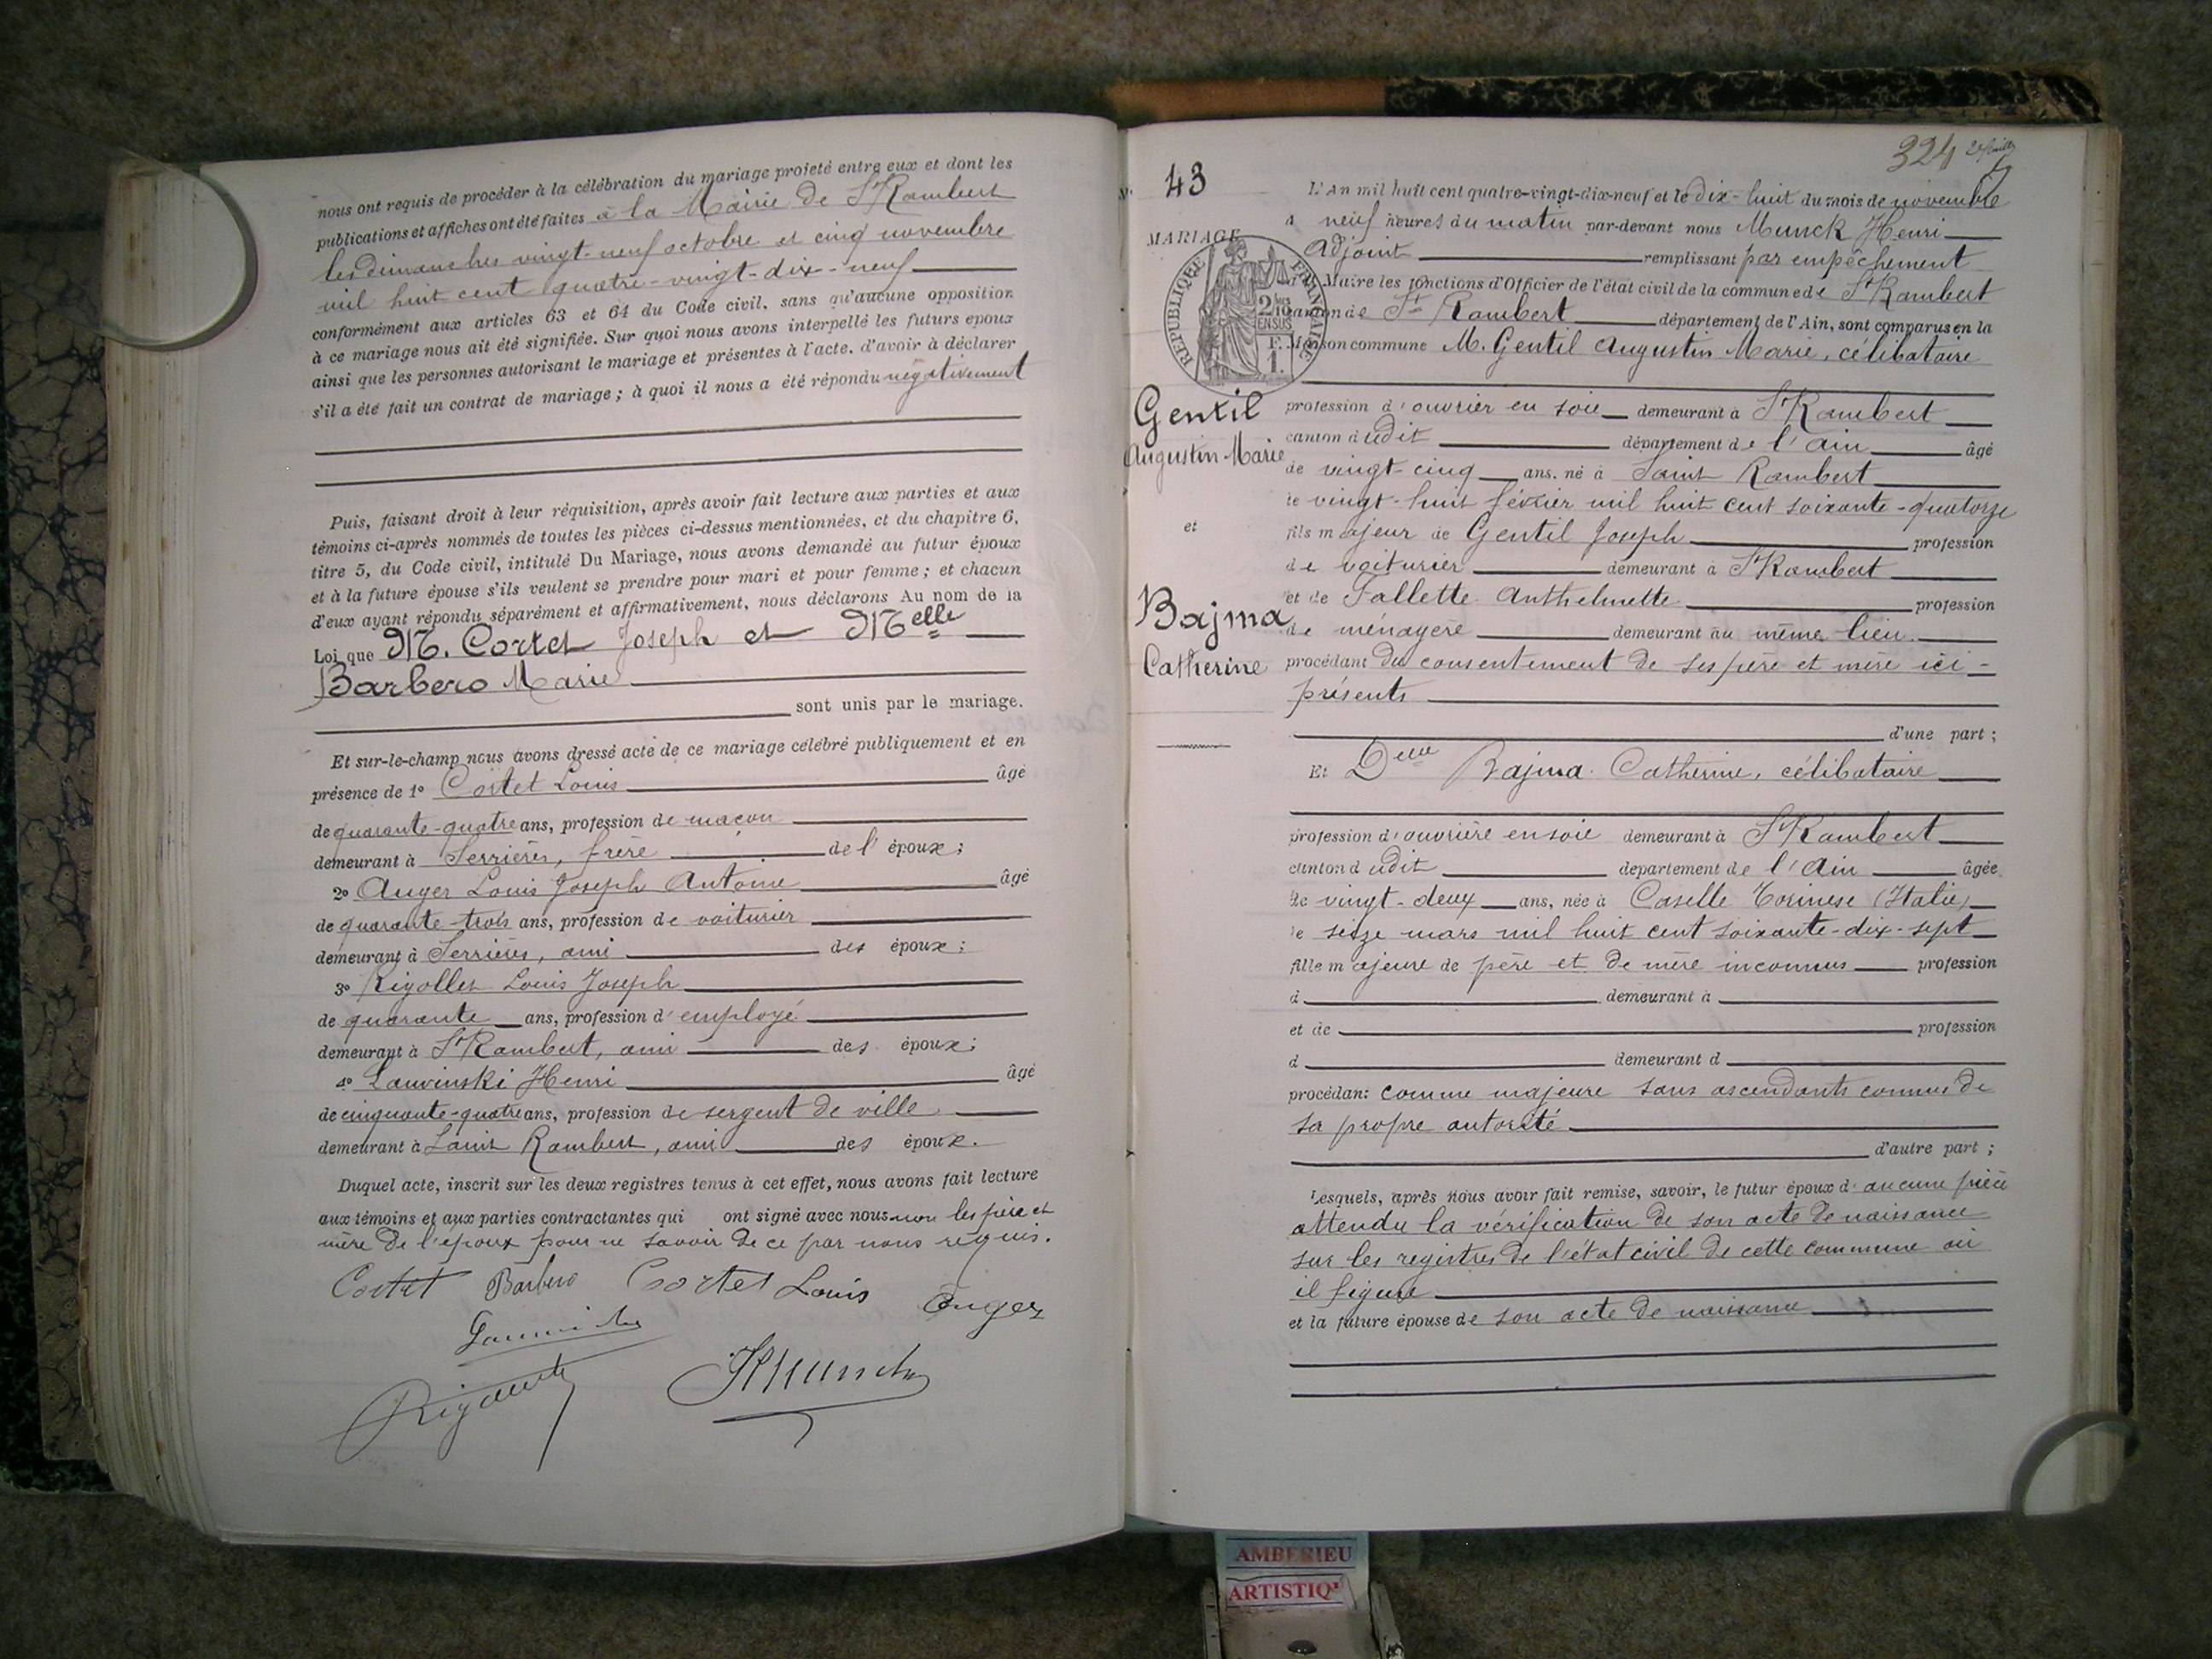 nous ont requis de procéder à la célébration du mariage projeté entre eux et dont les
publications et affiches ont été faites à la Mairie de St Rambert
les dimanches vingt-neuf octobre et cinq novembre
mil huit cent quatre-vingt-dix-neuf
conformément aux articles 63 et 64 du Code civil, sans qu'aucune opposition
à ce mariage nous ait été signifiée. Sur quoi nous avons interpellé les futurs epoux
ainsi que les personnes autorisant le mariage et présentes à l'acte, d'avoir à déclarer
s'il a été fait un contrat de mariage ; à quoi il nous a été répondu négativement
Puis, faisant droit à leur réquisition, après avoir fait lecture aux parties et aux
témoins ci-après nommés de toutes les pièces ci-dessus mentionnées, et du chapitre 6,
titre 5, du Code civil, intitulé Du Mariage, nous avons demandé au futur époux
et à la future épouse s'ils veulent se prendre pour mari et pour femme ; et chacun
d'eux ayant répondu séparément et affirmativement, nous déclarons Au nom de la
Loi que M. Cortet Joseph et Melle
Barbero Marie
sont unis par le mariage.
Et sur-le-champ nous avons dressé acte de ce mariage célébré publiquement et en
présence de 1° Cortet Louis âgé
de quarante-quatre ans, profession de maçon
demeurant à Serrières, frère de l'époux ;
2° Auger Louis Joseph Antoine âgé
de quarante-trois ans, profession de voiturier
demeurant à Serrières, ami des époux ;
3° Rigollet Louis Joseph
de quarante ans, profession d'employé
demeurant à St Rambert, ami des époux ;
4° Lauvinski Henri âgé
de cinquante-quatre ans, profession de sergent de ville
demeurant à Saint Rambert, ami des époux.
Duquel acte, inscrit sur les deux registres tenus à cet effet, nous avons fait lecture
aux témoins et aux parties contractantes qui ont signé avec nous non les père et
mère de l'époux pour ne savoir de ce par nous requis.
Cortet Barbero Cortet Louis Auger
324
N° 43
MARIAGE
REPUBLIQUE FRANÇAISE
2/10 EN SUS
F. 1.
Gentil
Augustin Marie
et
Bajma
Catherine
L'An mil huit cent quatre-vingt-dix-neuf et le dix-huit du mois de novembre
à neuf heures du matin par-devant nous Munck Henri
Adjoint remplissant par empêchement
Maire les fonctions d'Officier de l'état civil de la commune de St Rambert
canton de St Rambert département de l'Ain, sont comparus en la
Maison commune M. Gentil Augustin Marie, célibataire
profession d'ouvrier en soie demeurant à St Rambert
canton dudit département de l'Ain âgé
de vingt-cinq ans, né à Saint Rambert
le vingt-huit février mil huit cent soixante-quatorze
fils majeur de Gentil Joseph profession
de voiturier demeurant à St Rambert
et de Fallette Anthelmette profession
de ménagère demeurant au même lieu.
procédant du consentement de ses père et mère ici-
présents
d'une part ;
Et Delle Bajma Catherine, célibataire
profession d'ouvrière en soie demeurant à St Rambert
canton dudit département de l'Ain âgée
de vingt-deux ans, née à Caselle Torinese (Italie)
le seize mars mil huit cent soixante-dix-sept
fille majeure de père et de mère inconnus profession
d demeurant à
et de profession
d demeurant d
procédant comme majeure sans ascendants connus de
sa propre autorité
d'autre part ;
Lesquels, après nous avoir fait remise, savoir, le futur époux d'aucune pièce
attendu la vérification de son acte de naissance
sur les registres de l'état civil de cette commune où
il figure
et la future épouse de son acte de naissance
AMBERIEU
ARTISTIQ